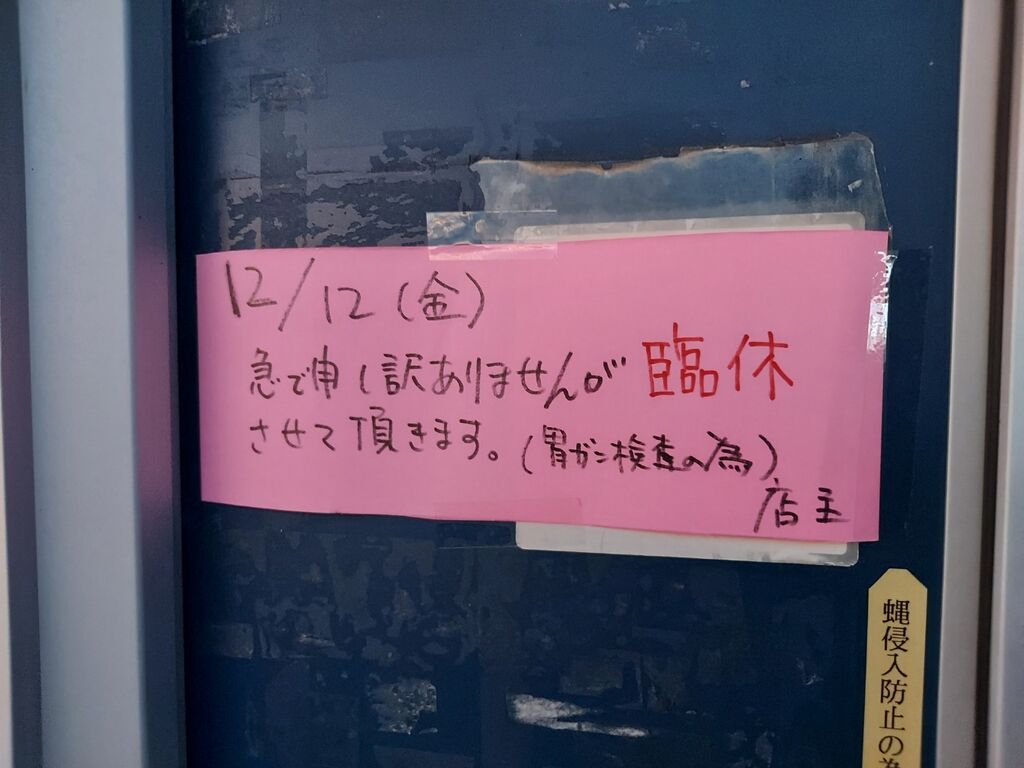 12/12(金)
急で申し訳ありませんが 臨休
させて頂きます。(胃ガン検査の為)
店主
蝿侵入防止の為